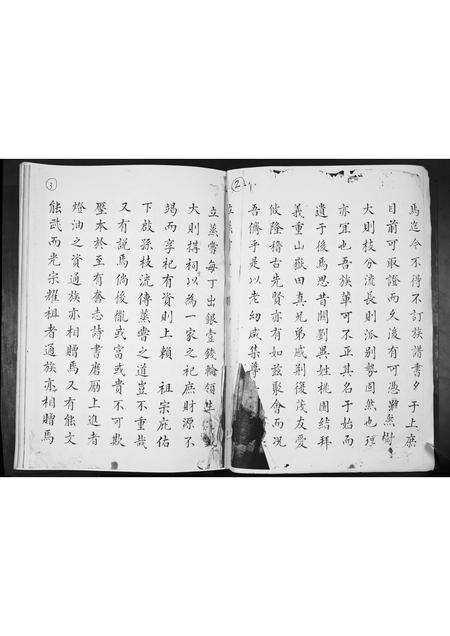 ②
馬迄今不得不訂族譜書夕于上庶
目前可取證而久後有可憑雖然樹
大則枝分流長則派別勢固然也理
亦宜也吾族葉可不正其名于始而
遺于後焉思昔關劉異姓桃園結拜
義重山嶽田真兄弟戚荆後茂友愛
攸隆稽古先賢亦有如兹聚會而况
吾儕乎是以老幼咸集尊
③
立蒸嘗每丁出銀壹錢輪領生
大則摶祠以為一家之祀庶財源不
竭而享祀有資則上賴 祖宗庇佑
下啟孫枝流傳蒸嘗之道豈不重哉
又有說焉倘後能武富或貴不可欺
壓本於至有奮志詩書磨勵上進者
燈油之資通族亦相贈焉又有能文
能武而光宗耀祖者通族亦相贈焉